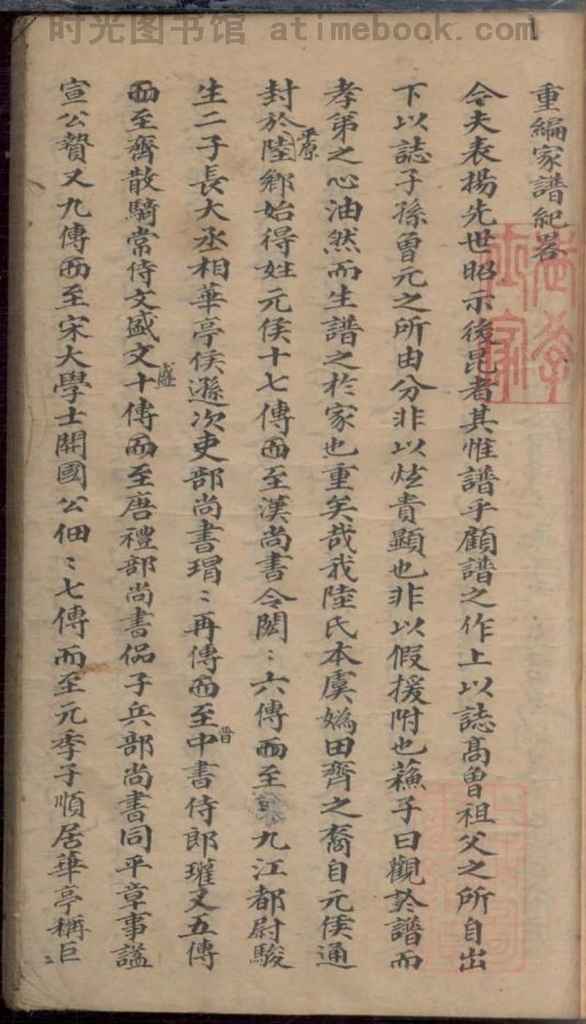 时光图书馆 atimebook.com
1
重編家譜紀畧
今夫表揚先世昭示後昆者其惟譜乎顧譜之作上以誌髙曾祖父之所自出
下以誌子孫曾元之所由分非以炫貴顯也非以假援附也蘓子曰觀於譜而
孝弟之心油然而生譜之於家也重矣哉我陸氏本虞媯田齊之裔自元侯通
封於平原陸鄉始得姓元侯十七傳而至漢尚書令閎〻六傳而至九江都尉駿
生二子長大丞相華亭侯遜次吏部尚書瑁〻再傳而至晉中書侍郎瓘又五傳
而至齊散騎常侍文盛文盛十傳而至唐禮部尚書侶子兵部尚書同平章事謚
宣公贄又九傳而至宋大學士開國公佃〻七傳而至元季子順居華亭稱巨〻